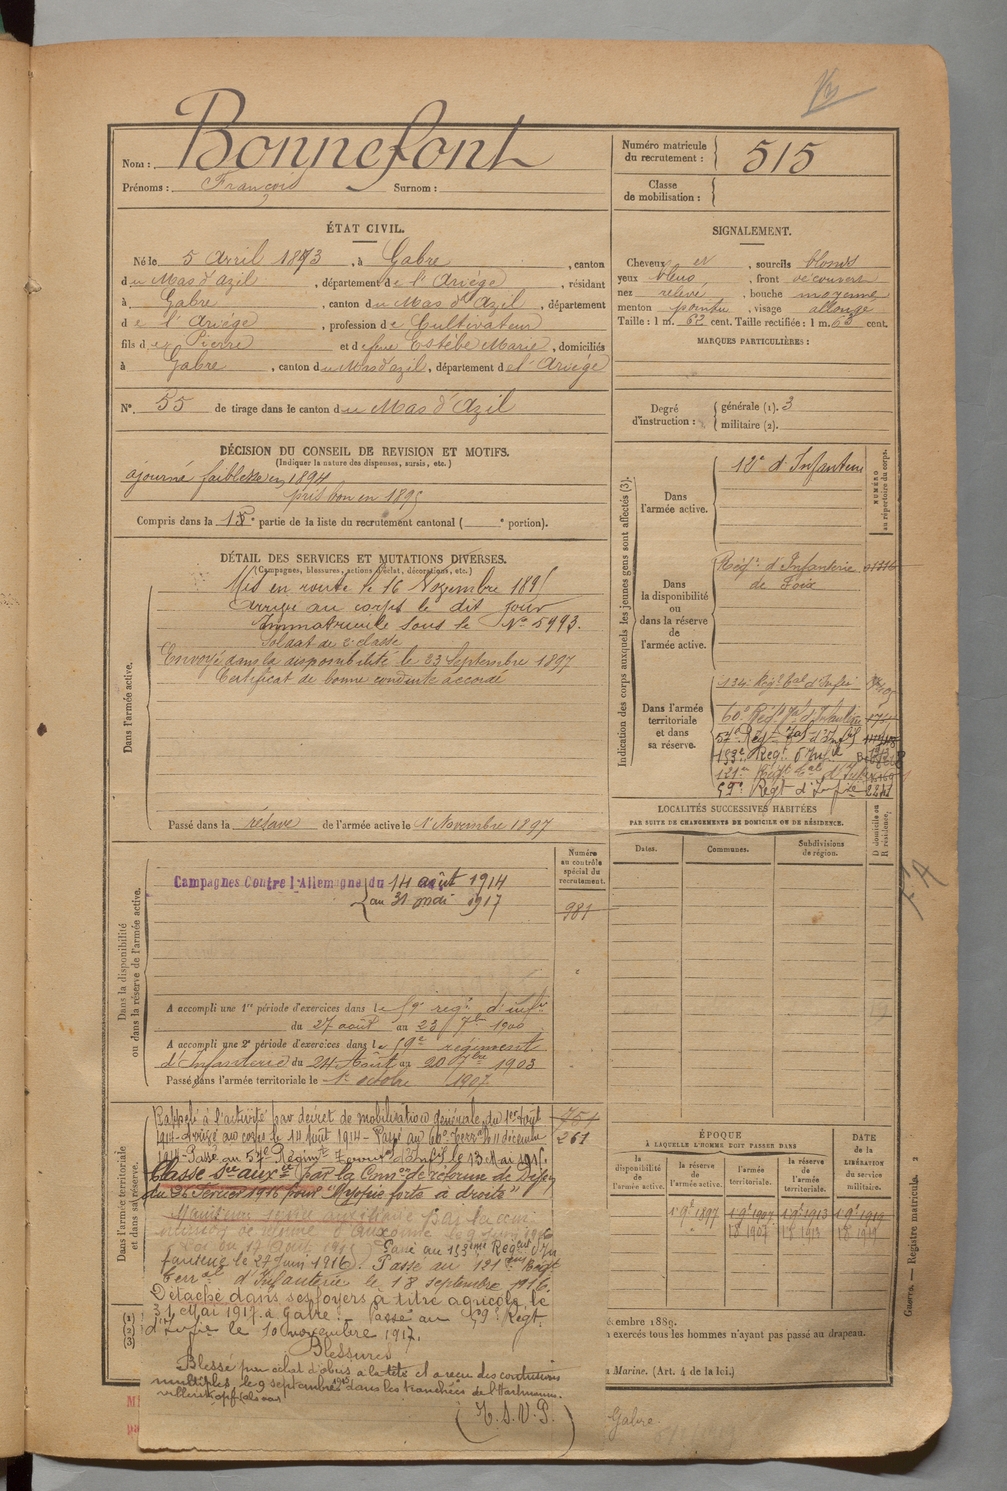 Bonnefont
Nom :
Prénoms : François Surnom :
Numéro matricule du recrutement : 515
Classe de mobilisation :
ÉTAT CIVIL.
Né le 5 Avril 1873, à Gabre, canton
du Mas d'azil, département de l'Ariége, résidant
à Gabre, canton du Mas d'Azil, département
de l'Ariége, profession de Cultivateur
fils de Pierre et de feue Estèbe Marie, domiciliés
à Gabre, canton du Mas d'azil, département de l'Ariége
N° 55 de tirage dans le canton du Mas d'Azil
SIGNALEMENT.
Cheveux et, sourcils blonds
yeux bleus, front découvert
nez relevé, bouche moyenne
menton pointu, visage allongé
Taille : 1 m. 62 cent. Taille rectifiée : 1 m. 63 cent.
MARQUES PARTICULIÈRES :
Degré d'instruction : générale (1). 3
militaire (2).
DÉCISION DU CONSEIL DE REVISION ET MOTIFS.
(Indiquer la nature des dispenses, sursis, etc.)
ajourné faiblesse en 1894
pris bon en 1895
Compris dans la 1e partie de la liste du recrutement cantonal ( e portion).
DÉTAIL DES SERVICES ET MUTATIONS DIVERSES.
(Campagnes, blessures, actions d'éclat, décorations, etc.)
Dans l'armée active.
Mis en route le 16 Novembre 1895
Arrivé au corps le dit jour
Immatriculé sous le N° 5993.
Soldat de 2e classe
Envoyé dans la disponibilité le 23 Septembre 1897
Certificat de bonne conduite accordé
Passé dans la réserve de l'armée active le 1 Novembre 1897
Indication des corps auxquels les jeunes gens sont affectés (3).
NUMÉRO au répertoire du corps.
Dans l'armée active.
12e d'Infanterie
Dans la disponibilité ou dans la réserve de l'armée active.
Régt d'Infanterie
de Foix
Dans l'armée territoriale et dans sa réserve.
134e Régt tal d'Infie
60e Régt tal d'Infanterie
57e Régt tal d'Inf
153e Régt d'Infie
121e Régt tal d'Infie
59e Régt d'Infie
LOCALITÉS SUCCESSIVES HABITÉES
PAR SUITE DE CHANGEMENTS DE DOMICILE OU DE RÉSIDENCE.
Dates. Communes. Subdivisions de région. D domicile ou R résidence.
Dans la disponibilité ou dans la réserve de l'armée active.
Numéro au contrôle spécial du recrutement.
Campagnes Contre l'Allemagne du 14 août 1914
au 31 mai 1917
981
A accompli une 1re période d'exercices dans le 59e régt d'infie
du 27 août au 23 7bre 1900
A accompli une 2e période d'exercices dans le 59e régiment
d'Infanterie du 24 Août au 20 7bre 1903
Passé dans l'armée territoriale le 1er octobre 1907
Dans l'armée territoriale et dans sa réserve.
Rappelé à l'activité par décret de mobilisation générale du 1er Août
1914 - Arrivé au corps le 14 Août 1914 - Passé au 60e Terral le 11 décembre
1914 - Passé au 57e Régiment Territorial d'Infie le 13 Mai 1915.
261
Classé Sce auxre par la Comon de réforme de Dijon
du 26 Février 1916 pour "Myopie forte à droite"
Maintenu service auxiliaire par la com
Passé au 153ème Régiment d'In
fanterie le 27 Juin 1916. Passé au 121ème Régt
Terral d'Infanterie le 18 septembre 1916.
Détaché dans ses foyers à titre agricole le
31 Mai 1917 à Gabre. Passé au 59e Régt.
d'Infie le 10 novembre 1917.
Blessures
Blessé par éclat d'obus à la tête et a reçu des contusions
multiples, le 9 septembre 1915 dans les tranchées de l'Hartmanns
willerkopf (alsace)
(T.S.V.P.)
ÉPOQUE
À LAQUELLE L'HOMME DOIT PASSER DANS
la disponibilité de l'armée active. la réserve de l'armée active. l'armée territoriale. la réserve de l'armée territoriale.
DATE de la LIBÉRATION du service militaire.
1 9e 1897 1 9e 1907 1 9e 1913 1 9e 1919
cembre 1889.
n exercés tous les hommes n'ayant pas passé au drapeau.
a Marine. (Art. 4 de la loi.)
Gabre
Guerre. — Registre matricule. 2
(1)
(2)
(3)